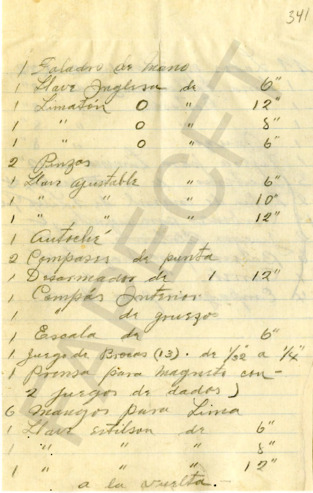 341
1 Taladro de mano
1 Llave Inglesa de 6"
1 Limatón O " 12"
1 " O " 8"
1 " O " 6"
2 Pinzas
1 Llave ajustable 6"
1 " " 10"
1 " " 12"
1 Autoclé
2 Compases de punta
1 Desarmador de 1 12"
1 Compás Interior
1 " de gruezos
1 Escala de 6"
1 Juego de Brocas (13). de 1/32 a 1/4"
1 Prensa para magneto con-
2 juegos de dados)
6 Mangos para Lima
1 Llave estilson de 6"
1 " " " 8"
1 " " " 12"
a la vuelta.-
FAPECFT